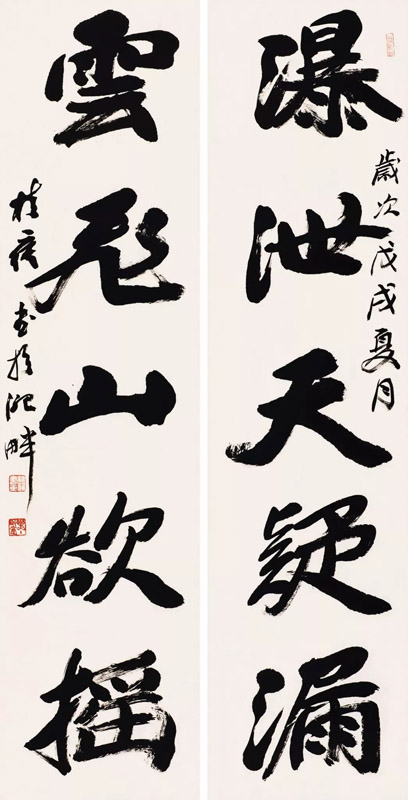 瀑泄天疑漏
歲次戊戌夏月
雲飛山欲摇
書於淝畔